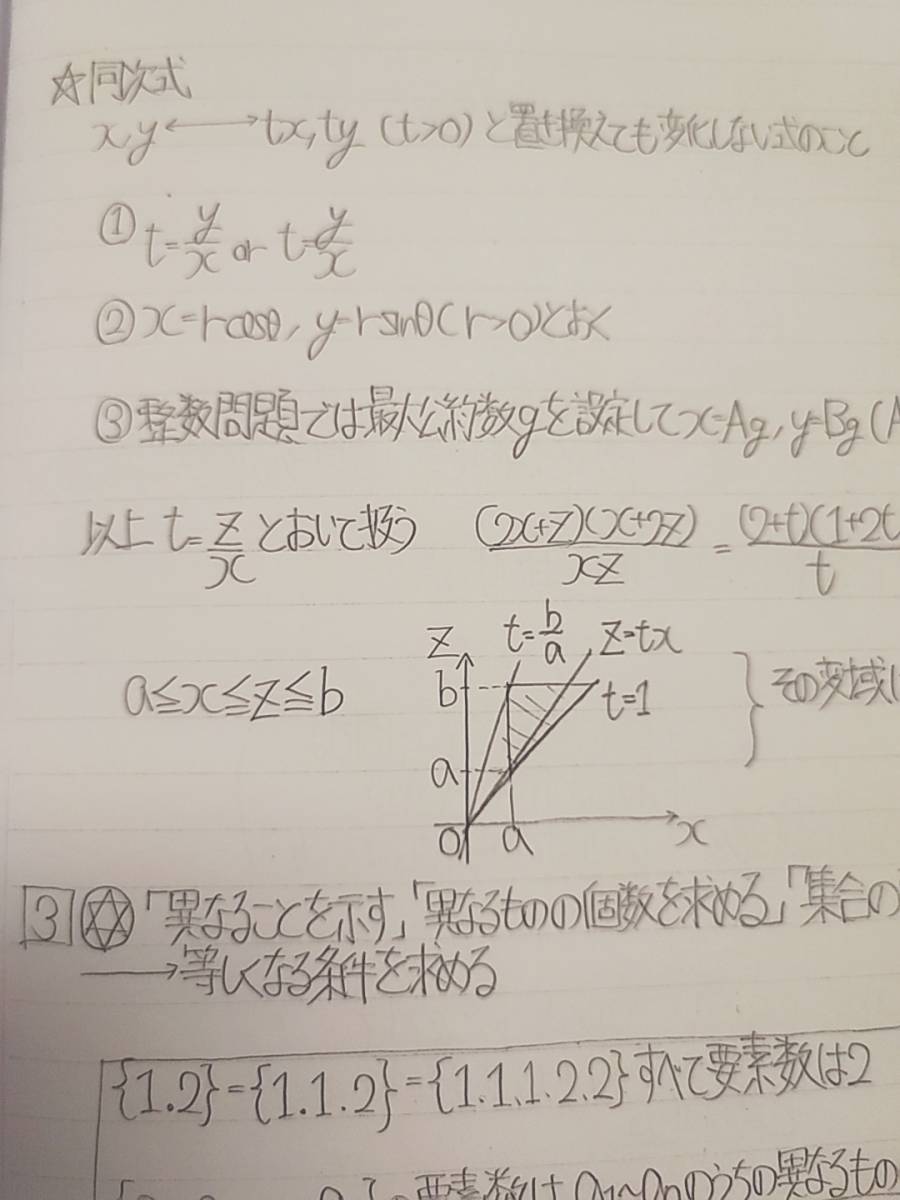 ☆同次式
x,y ⟷ tx,ty (t>0) と置き換えても変化しない式のこと
① t=y/x or t=y/x
② x=rcosθ, y=rsinθ(r>0)とおく
③ 整数問題では最大公約数gを設定してx=Ag, y=Bg(A
以上 t=z/x とおいて扱う (2x+z)(x+2z)/xz = (2+t)(1+2t/t
a≦x≦z≦b
z t=b/a z=tx
b t=1
a
O a x
} その変域は
3 ☆「異なることを示す」「異なるものの個数を求める」「集合の
→等しくなる条件を求める
{1.2}={1.1.2}={1.1.1.2.2}すべて要素数は2
の要素数は a1~anのうちの異なるもの